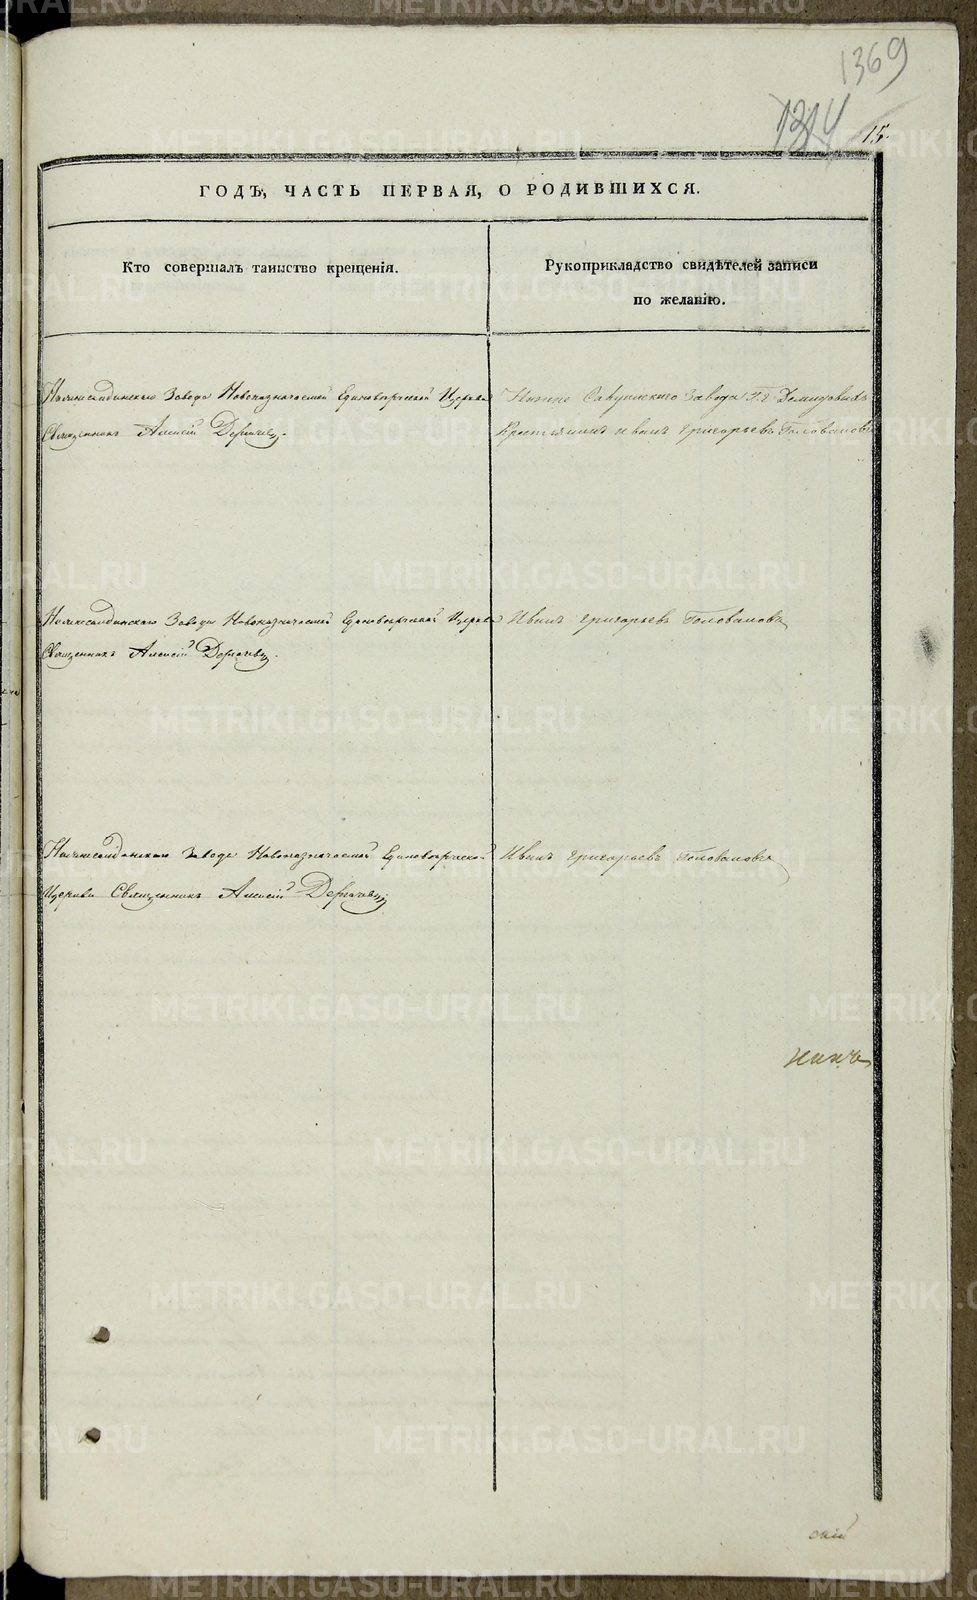 1369
1314
15.
ГОДЪ, ЧАСТЬ ПЕРВАЯ, О РОДИВШИХСЯ.
Кто совершалъ таинство крещенія.
Рукоприкладство свидѣтелей записи
по желанію.
Нижнесалдинскаго Завода Новоназначаемой Единовѣрческой Церкви
Священникъ Алексій Дерягинъ.
Нижне Завода Г.г. Демидовыхъ
Крестьянинъ иванъ григорьевъ Головановъ
Нижнесалдинскаго Завода Новоназначаемой Единовѣрческой Церкви
Священникъ Алексій
Иванъ григорьевъ Головановъ
Нижнесалдинскаго Завода Новоназначаемой Единовѣрческой
Церкви Священникъ Алексій
Иванъ григорьевъ Головановъ
скій
METRIKI.GASO-URAL.RU